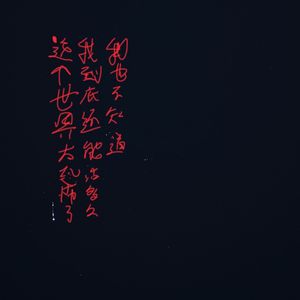 我也不知道
我到底还能活多久
这个世界太恐怖了